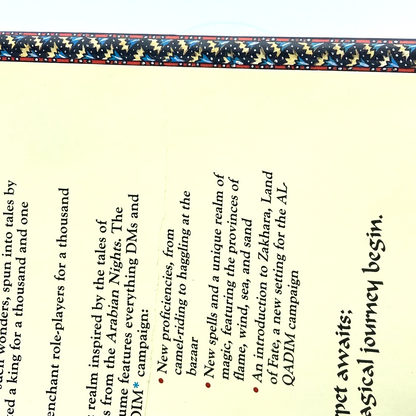 such wonders, spun into tales by
a king for a thousand and one
enchant role-players for a thousand
realm inspired by the tales of
s from the Arabian Nights. The
ume features everything DMs and
DIM* campaign:
• New proficiencies, from
camel-riding to haggling at the
bazaar
• New spells and a unique realm of
magic, featuring the provinces of
flame, wind, sea, and sand
• An introduction to Zakhara, Land
of Fate, a new setting for the AL
QADIM campaign
pet awaits;
agical journey begin.